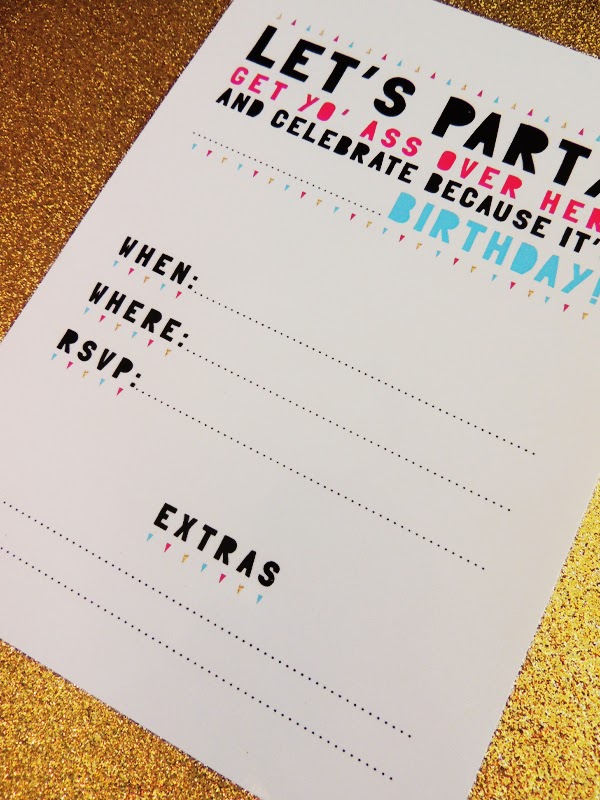 LET'S PARTA
GET YO' ASS OVER HER
AND CELEBRATE BECAUSE IT'
BIRTHDAY!
WHEN:
WHERE:
RSVP:
EXTRAS